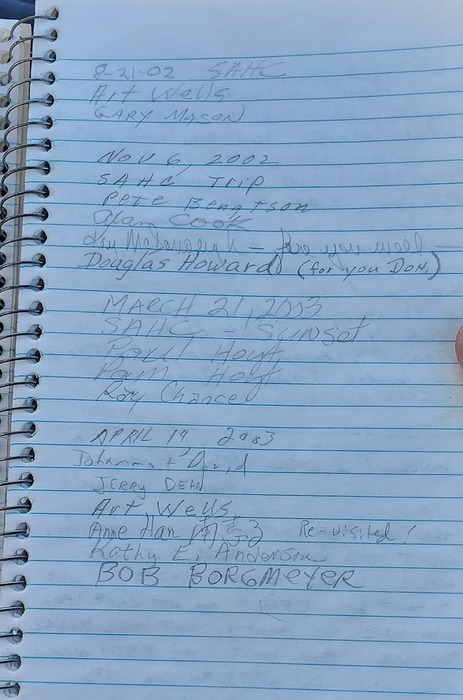 8-21-02 SAHC
Art Wells
GARY MASON
NOV 6, 2002
SAHC TRIP
PETE Bengtson
Alan COOK
- for you well -
Douglas Howard (for you DON.)
MARCH 21, 2003
SAHC - Sunset
Paul Hoyt
Pam Hoyt
Roy Chance
APRIL 19 2003
Johanna + David
JERRY DEAN
Art Wells
Anne Han Re-visited!
Kathy E. Anderson
BOB BORGMEYER